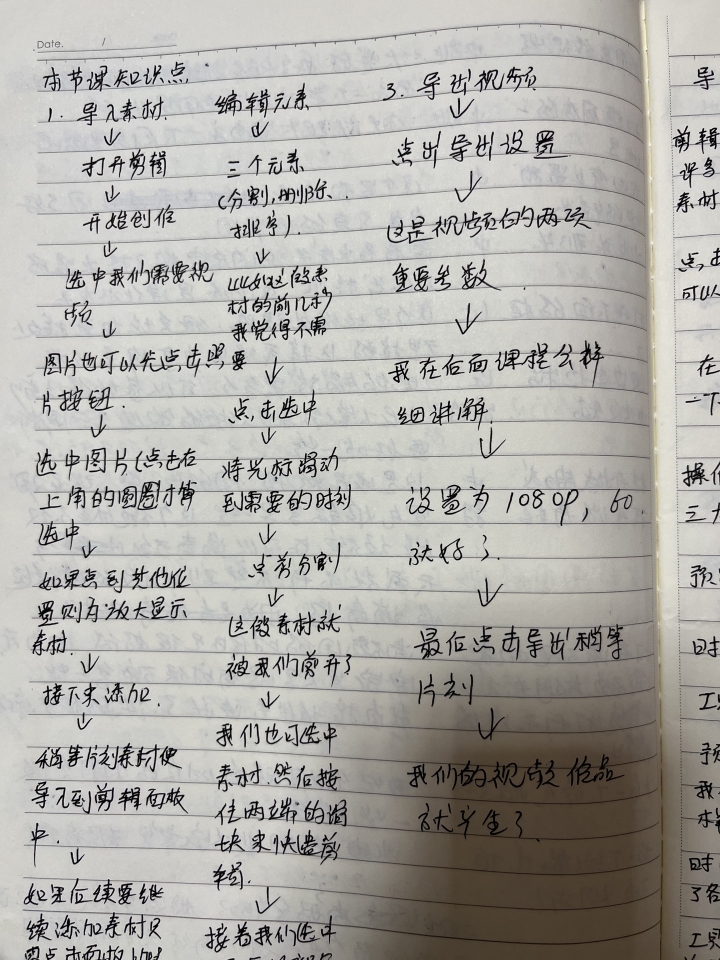 Date. /
本节课知识点
1. 导入素材.
↓
打开剪辑
↓
开始创作
↓
选中我们需要视
频
↓
图片也可以先点击照
片按钮.
↓
选中图片(点击右
上角的圆圈才算
选中
↓
如果点到其他位
置则为放大显示
素材.
↓
接下来添加.
↓
稍等片刻素材便
导入到剪辑面板
中.
↓
如果后续要继
续添加素材只
编辑元素
↓
三个元素
(分割,删除、
排序).
↓
比如这段素
材的前几秒
我觉得不需
要
↓
点击选中
↓
将光标滑动
到需要的时刻
↓
点击分割
↓
这段素材就
被我们剪开了
↓
我们也可选中
素材.然后按
住两端的滑
块来快速剪
辑.
↓
接着我们选中
3. 导出视频
↓
点出导出设置
↓
这是视频的两项
重要参数.
↓
我在后面课程会详
细讲解.
↓
设置为1080P,60.
就好了.
↓
最后点击导出稍等
片刻
↓
我们的视频作品
就半生了.
导
剪辑
许多
素材
点击
可以
在
一下
操作
三大
预
时
工
预
我
本
时
了各
工具